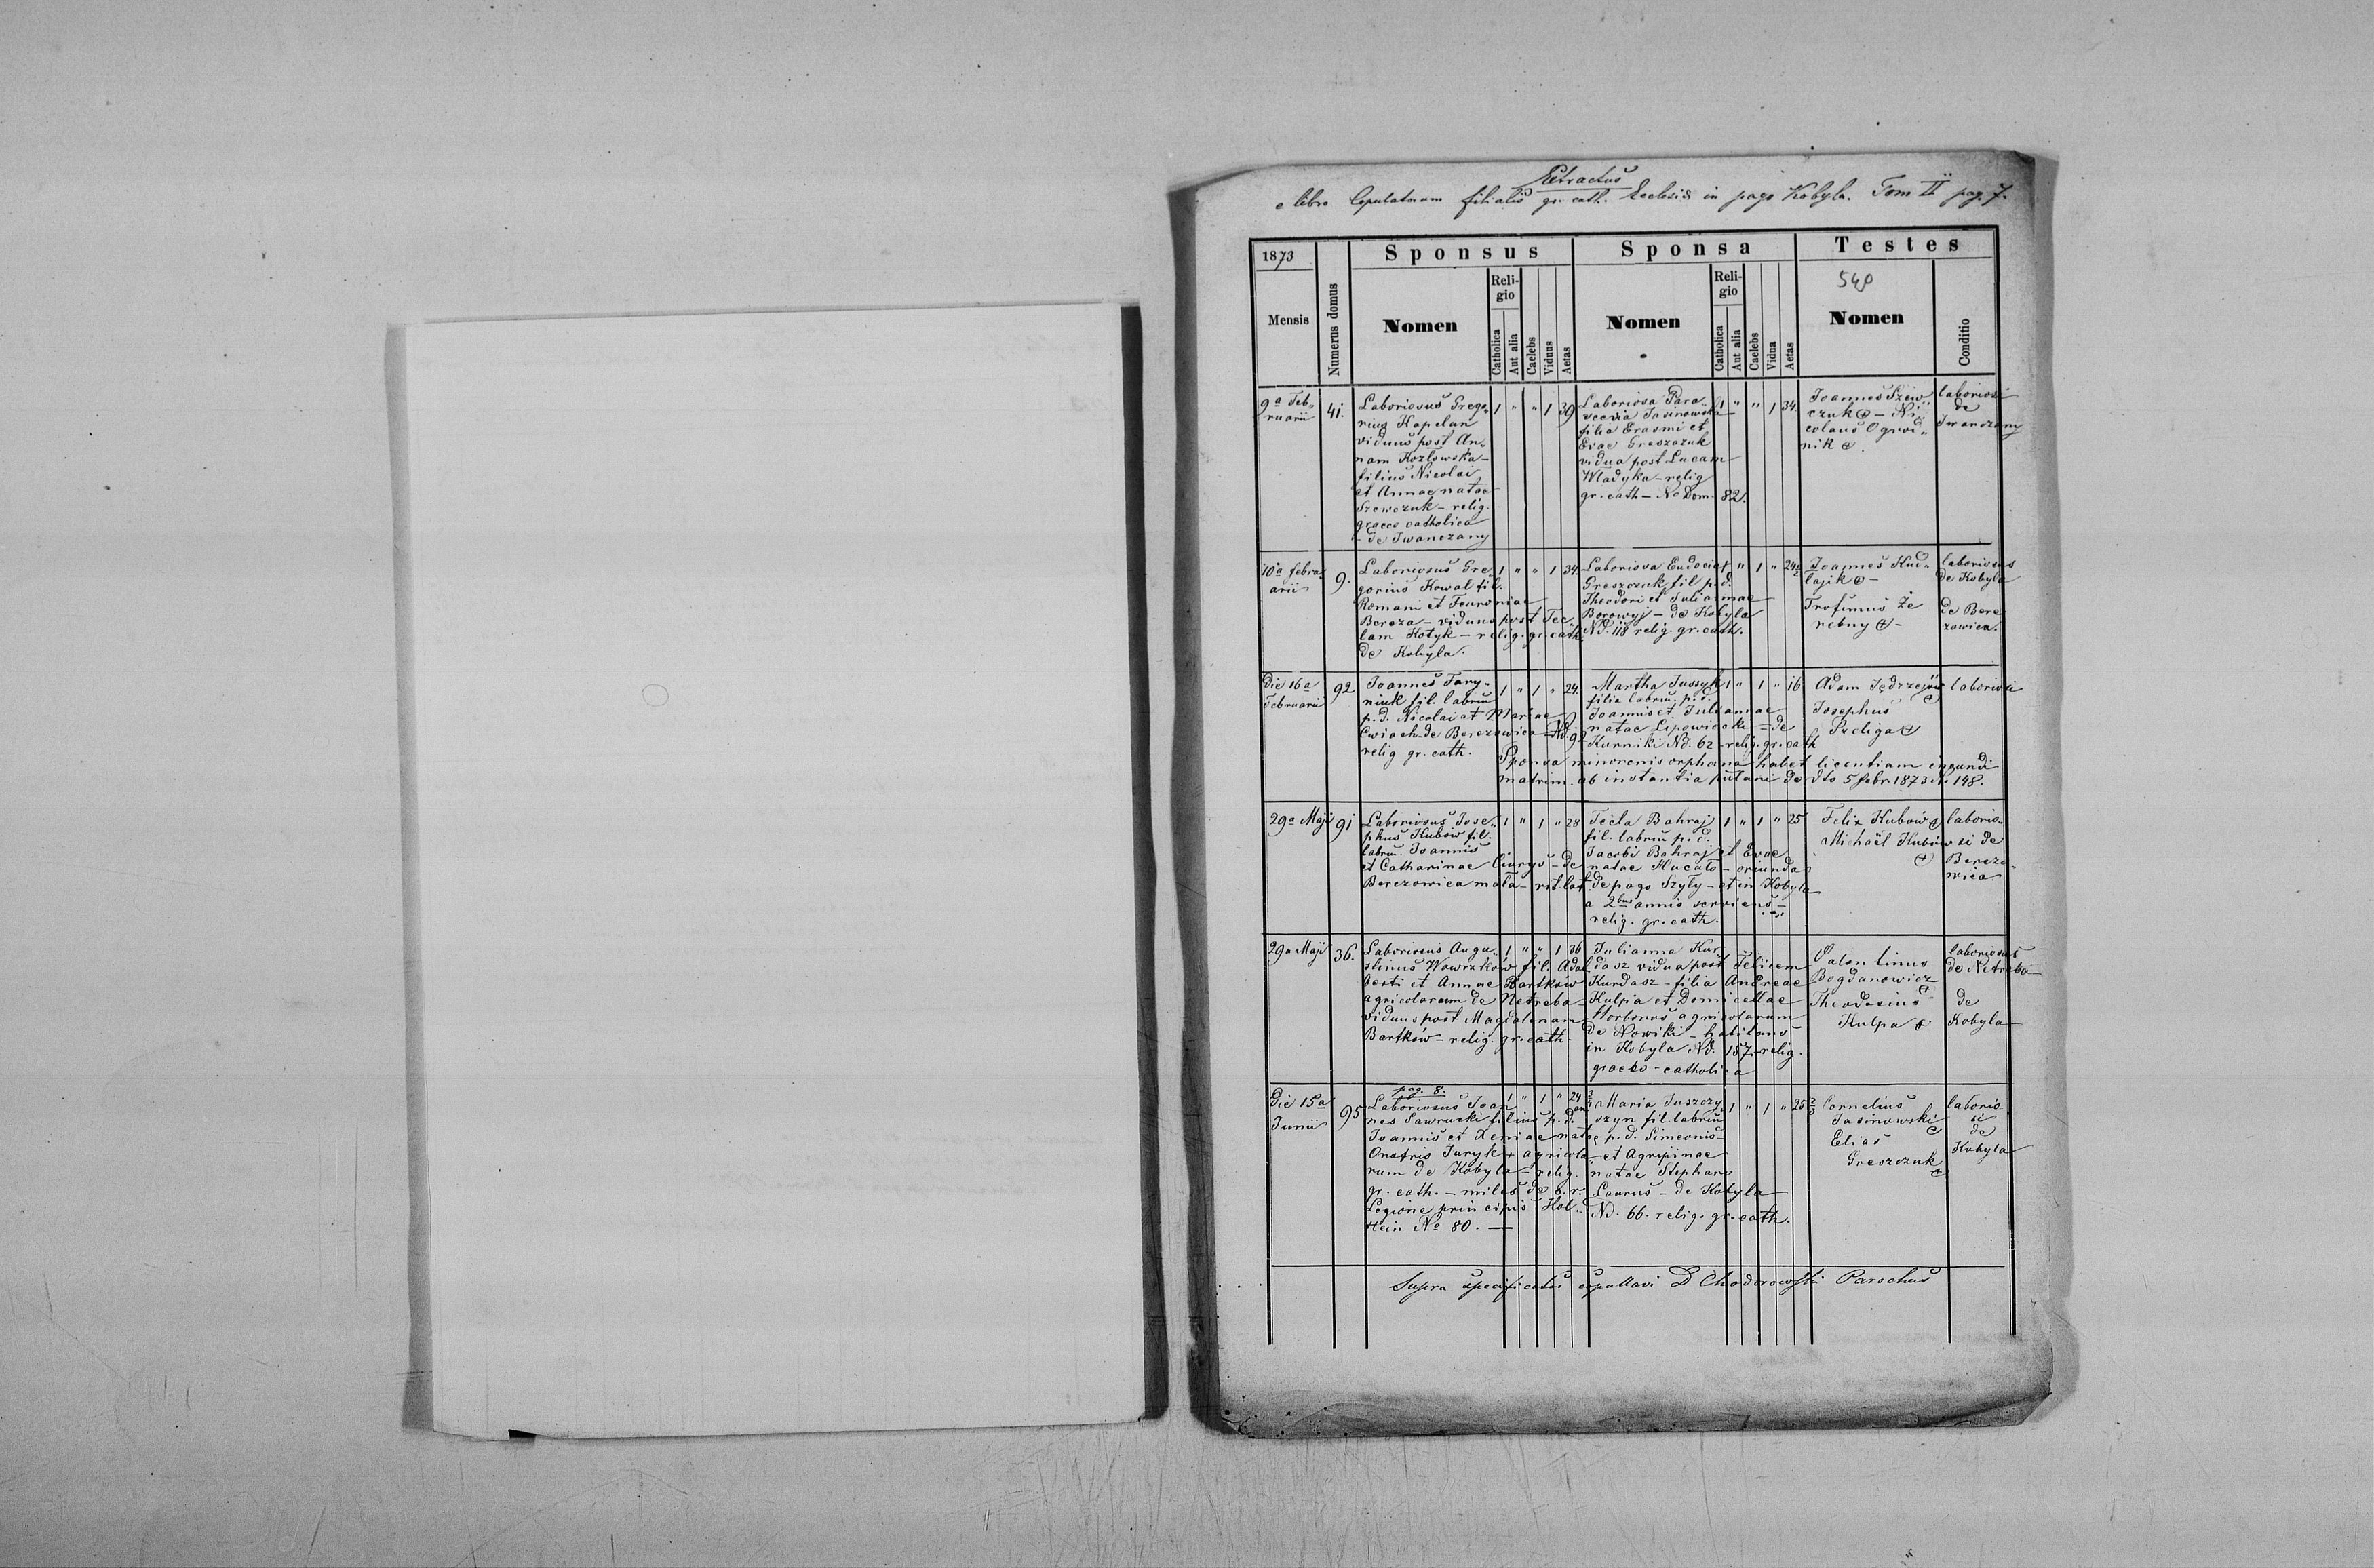 Extractus
e libro Copulatorum filialis gr. cath. Ecclesiæ in pago Kobyla. Tom II pag. 7.
1873
Mensis
Numerus domus
Sponsus
Nomen
Religio
Catholica
Aut alia
Caelebs
Viduus
Aetas
Sponsa
Nomen
Religio
Catholica
Aut alia
Caelebs
Vidua
Aetas
Testes
548
Nomen
Conditio
9a Feb„
ruarii
41.
Laboriosus Grego„
rius Kapelan
viduus post An„
nam Kozłowska –
filius Nicolai
et Annae natae
Szewczuk – relig.
graeco catholica
– de Iwanczany
1 " " 1 39
Laboriosa Para„
scevia Jasinowska
filia Erasmi et
Evae Greszczuk
vidua post Lucam
Wladyka – relig
gr. cath – No Dom. 82.
1 " " 1 34.
Joannes Szew„
czuk + – Ni„
colaus Ogrod„
nik +.
laboriosi
de
Iwanczany
10a febru„
arii
9.
Laboriosus Gre„
gorius Kowal fil.
Romani et Fevroniae
Bereza – viduus post Tec„
lam Kotyk – relig. gr. cath.
de Kobyla.
1 " " 1 34.
Laboriosa Eudocia
Greszczuk fil. p. d.
Theodori et Juliannae
Borowyj – de Kobyla
Nd. 118 relig. gr. cath.
1 " 1 " 24
Joannes Kud„
lajik + –
Trofimus Że
rebny + –
laboriosus
de Kobyla
de Bere
zowica.
Die 16a
Februarii
92
Joannes Tary„
niuk fil. labrm
p. d. Nicolai et Mariae
Cwiach – de Berezowica – Nd. 92
relig gr. cath.
1 " 1 " 24.
Martha Jussyk
filia labrm p. d.
Joannis et Julianae
natae Lipowiecki – de
Kurniki Nd. 62 – relig. gr. cath
1 " 1 " 16
Adam Jędrzejów
+
Josephus
Preliga +
laboriosi
Sponsa minorenis orphana habet licentiam ineundi
matrim. ab instantia putani de dto 5 febr. 1873 No 148.
29a Maji
91
Laboriosus Jose„
phus Kubów fil.
labrm Joannis
et Catharinae Ciurys – de
Berezowica mala – rit lat.
1 " 1 " 28
Tecla Bahraj
fil. labrm p. d.
Jacobi Bahraj et Evae
natae Hucało – oriunda
de pago Szyły – et in Kobyla
a 2bus annis serviens –
relig. gr. cath.
1 " 1 " 25
Felix Kubów +
Michaël Kubów
+
laborio„
si de
Berezo„
wica.
29a Maji
36.
Laboriosus Augu„
stinus Wawrzków fil. Adal
berti et Annae Bartkow
agricolarum de Netreba
viduus post Magdalenam
Bartków – relig. gr. cath.
1 " " 1 36
Julianna Kur„
dasz vidua post Felicem
Kurdasz – filia Andreae
Kulpia et Domicellae
Horbonos agricolarum
de Nowiki – habitans
in Kobyla Nd. 157. relig.
graeco – catholica
Valentinus
Bogdanowicz
+
Theodosius
Kulpa +
laboriosus
de Netreba
de
Kobyla
Die 15a
Junii
95
pag. 8.
Laboriosus Joan
nes Sawrucki filius p. d.
Joannis et Xeniae natae
Onofris Juryk + agricola„
rum de Kobyla – relig.
gr. cath. – miles de c. r.
Legione principis Hol„
stein No 80. —
1 " 1 " 24
Maria Juszczy„
szyn fil. labrm
p. d. Simeonis
et Agripinae
natae Stephan
Laurus – de Kobyla
Nd. 66. relig. gr. cath.
1 " 1 " 25 2/3
Cornelius
Jasinowski
+
Elias
Greszczuk
+
laborio„
si
de
Kobyla
Supra specificatos copulavi D Chodorowski Parochus